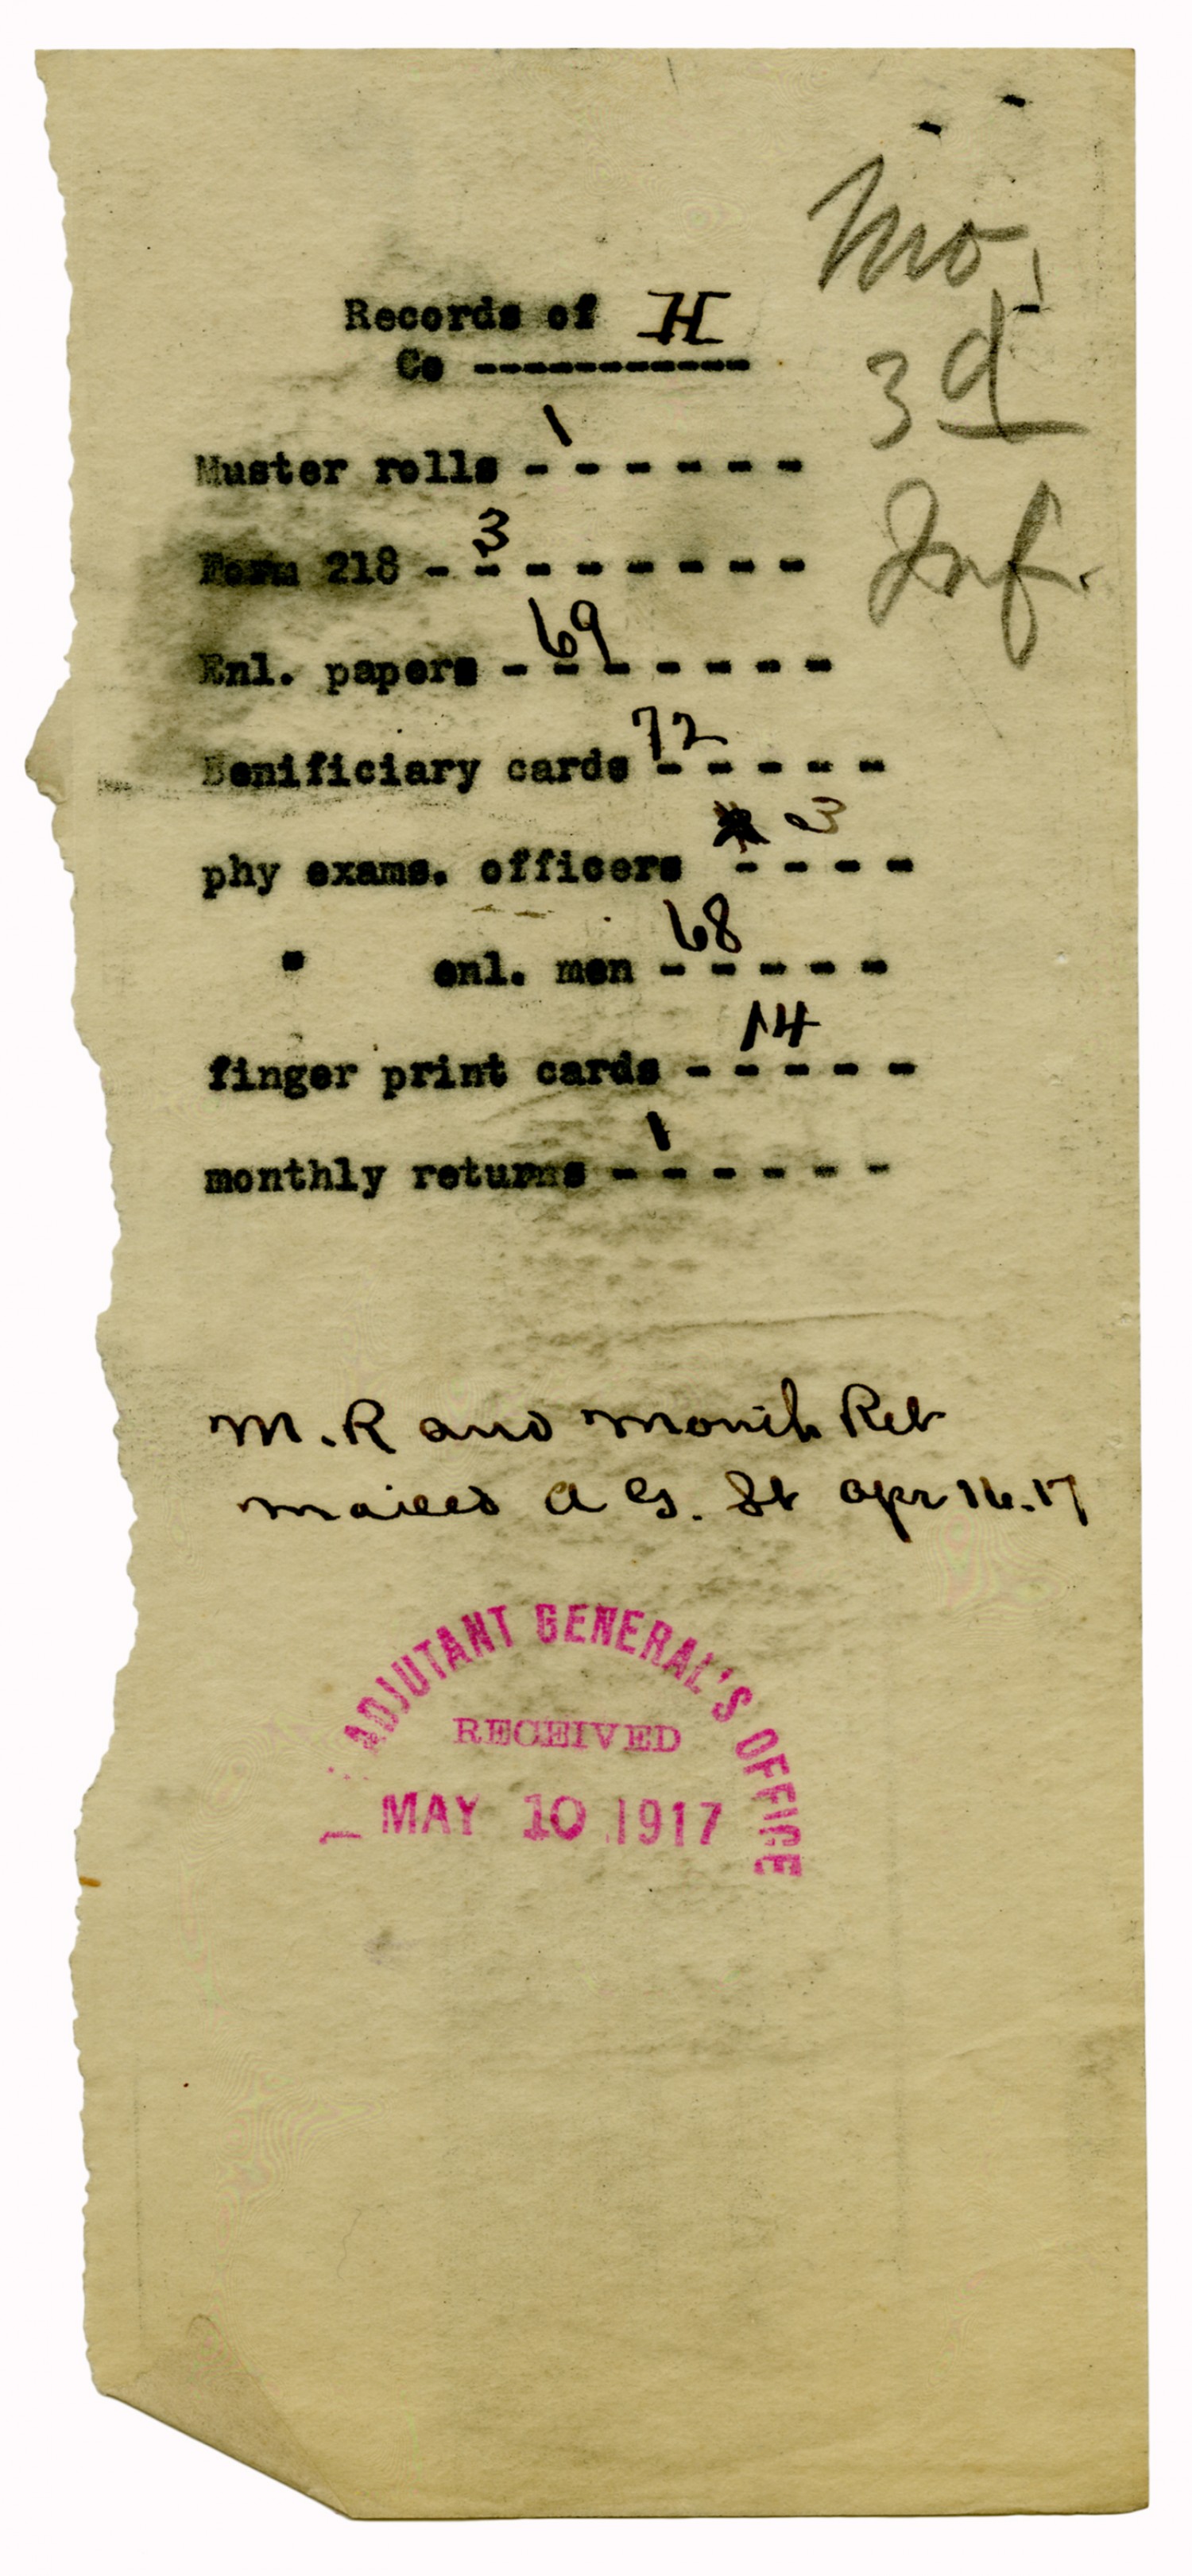 Mo.
3d
Inf.
Records of H
Co -----------
Muster rolls - 1 - - - - -
Form 218 - 3 - - - - - -
Enl. papers - 69 - - - - -
Benificiary cards 72 - - - - -
phy exams. officers 3 - - - -
" enl. men 68 - - - - -
finger print cards - 14 - - - -
monthly returns - 1 - - - - -
M. R and Month Ret
mailed A G. St Apr 16-17
ADJUTANT GENERAL'S OFFICE
RECEIVED
MAY 10 1917